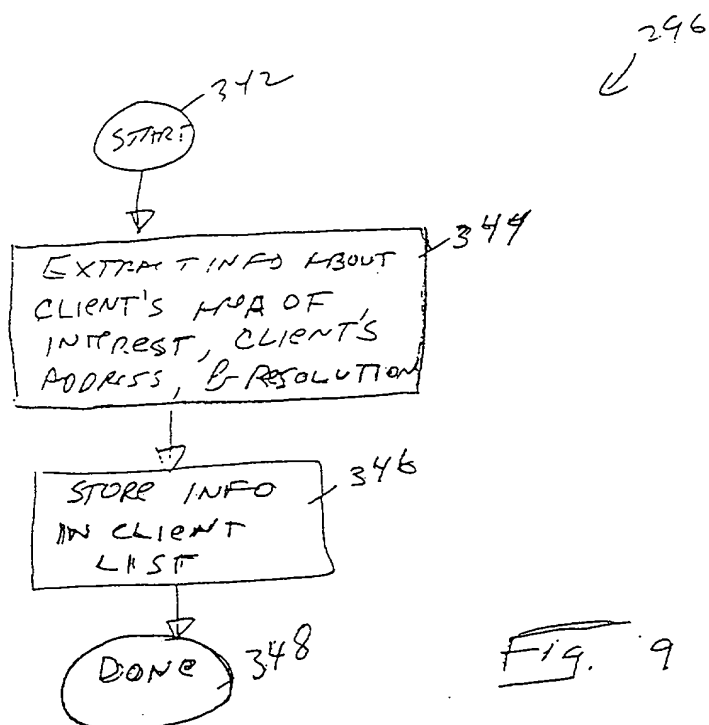 296
342
START
344
EXTRACT INFO ABOUT
CLIENT'S AREA OF
INTEREST, CLIENT'S
ADDRESS, & RESOLUTION
346
STORE INFO
IN CLIENT
LIST
DONE
348
Fig. 9